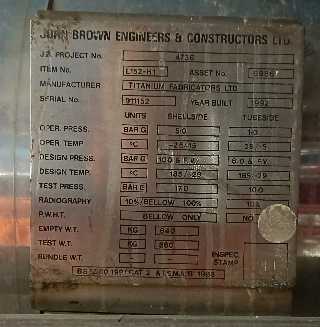 JOHN BROWN ENGINEERS & CONSTRUCTORS LTD.
J.B. PROJECT No. 4738
ITEM No. L152-H1 ASSET No.
MANUFACTURER TITANIUM FABRICATORS LTD
SERIAL No. 911152 YEAR BUILT 1992
UNITS SHELLSIDE TUBESIDE
OPER. PRESS. BAR G 5·0 1·0
OPER. TEMP °C
DESIGN PRESS. BAR G 10·0 & F.V. 6·0 & F.V.
DESIGN TEMP. °C 185/-29 185/-29
TEST PRESS. BAR G 17·0 10·0
RADIOGRAPHY 10%/BELLOW 100% 10%
P.W.H.T. BELLOW ONLY NO
EMPTY W.T. KG 640
TEST W.T. KG 860
BUNDLE W.T. — — INSPEC. STAMP
CODE: BS 5500 1991 CAT 2 & T.E.M.A.'B' 1988